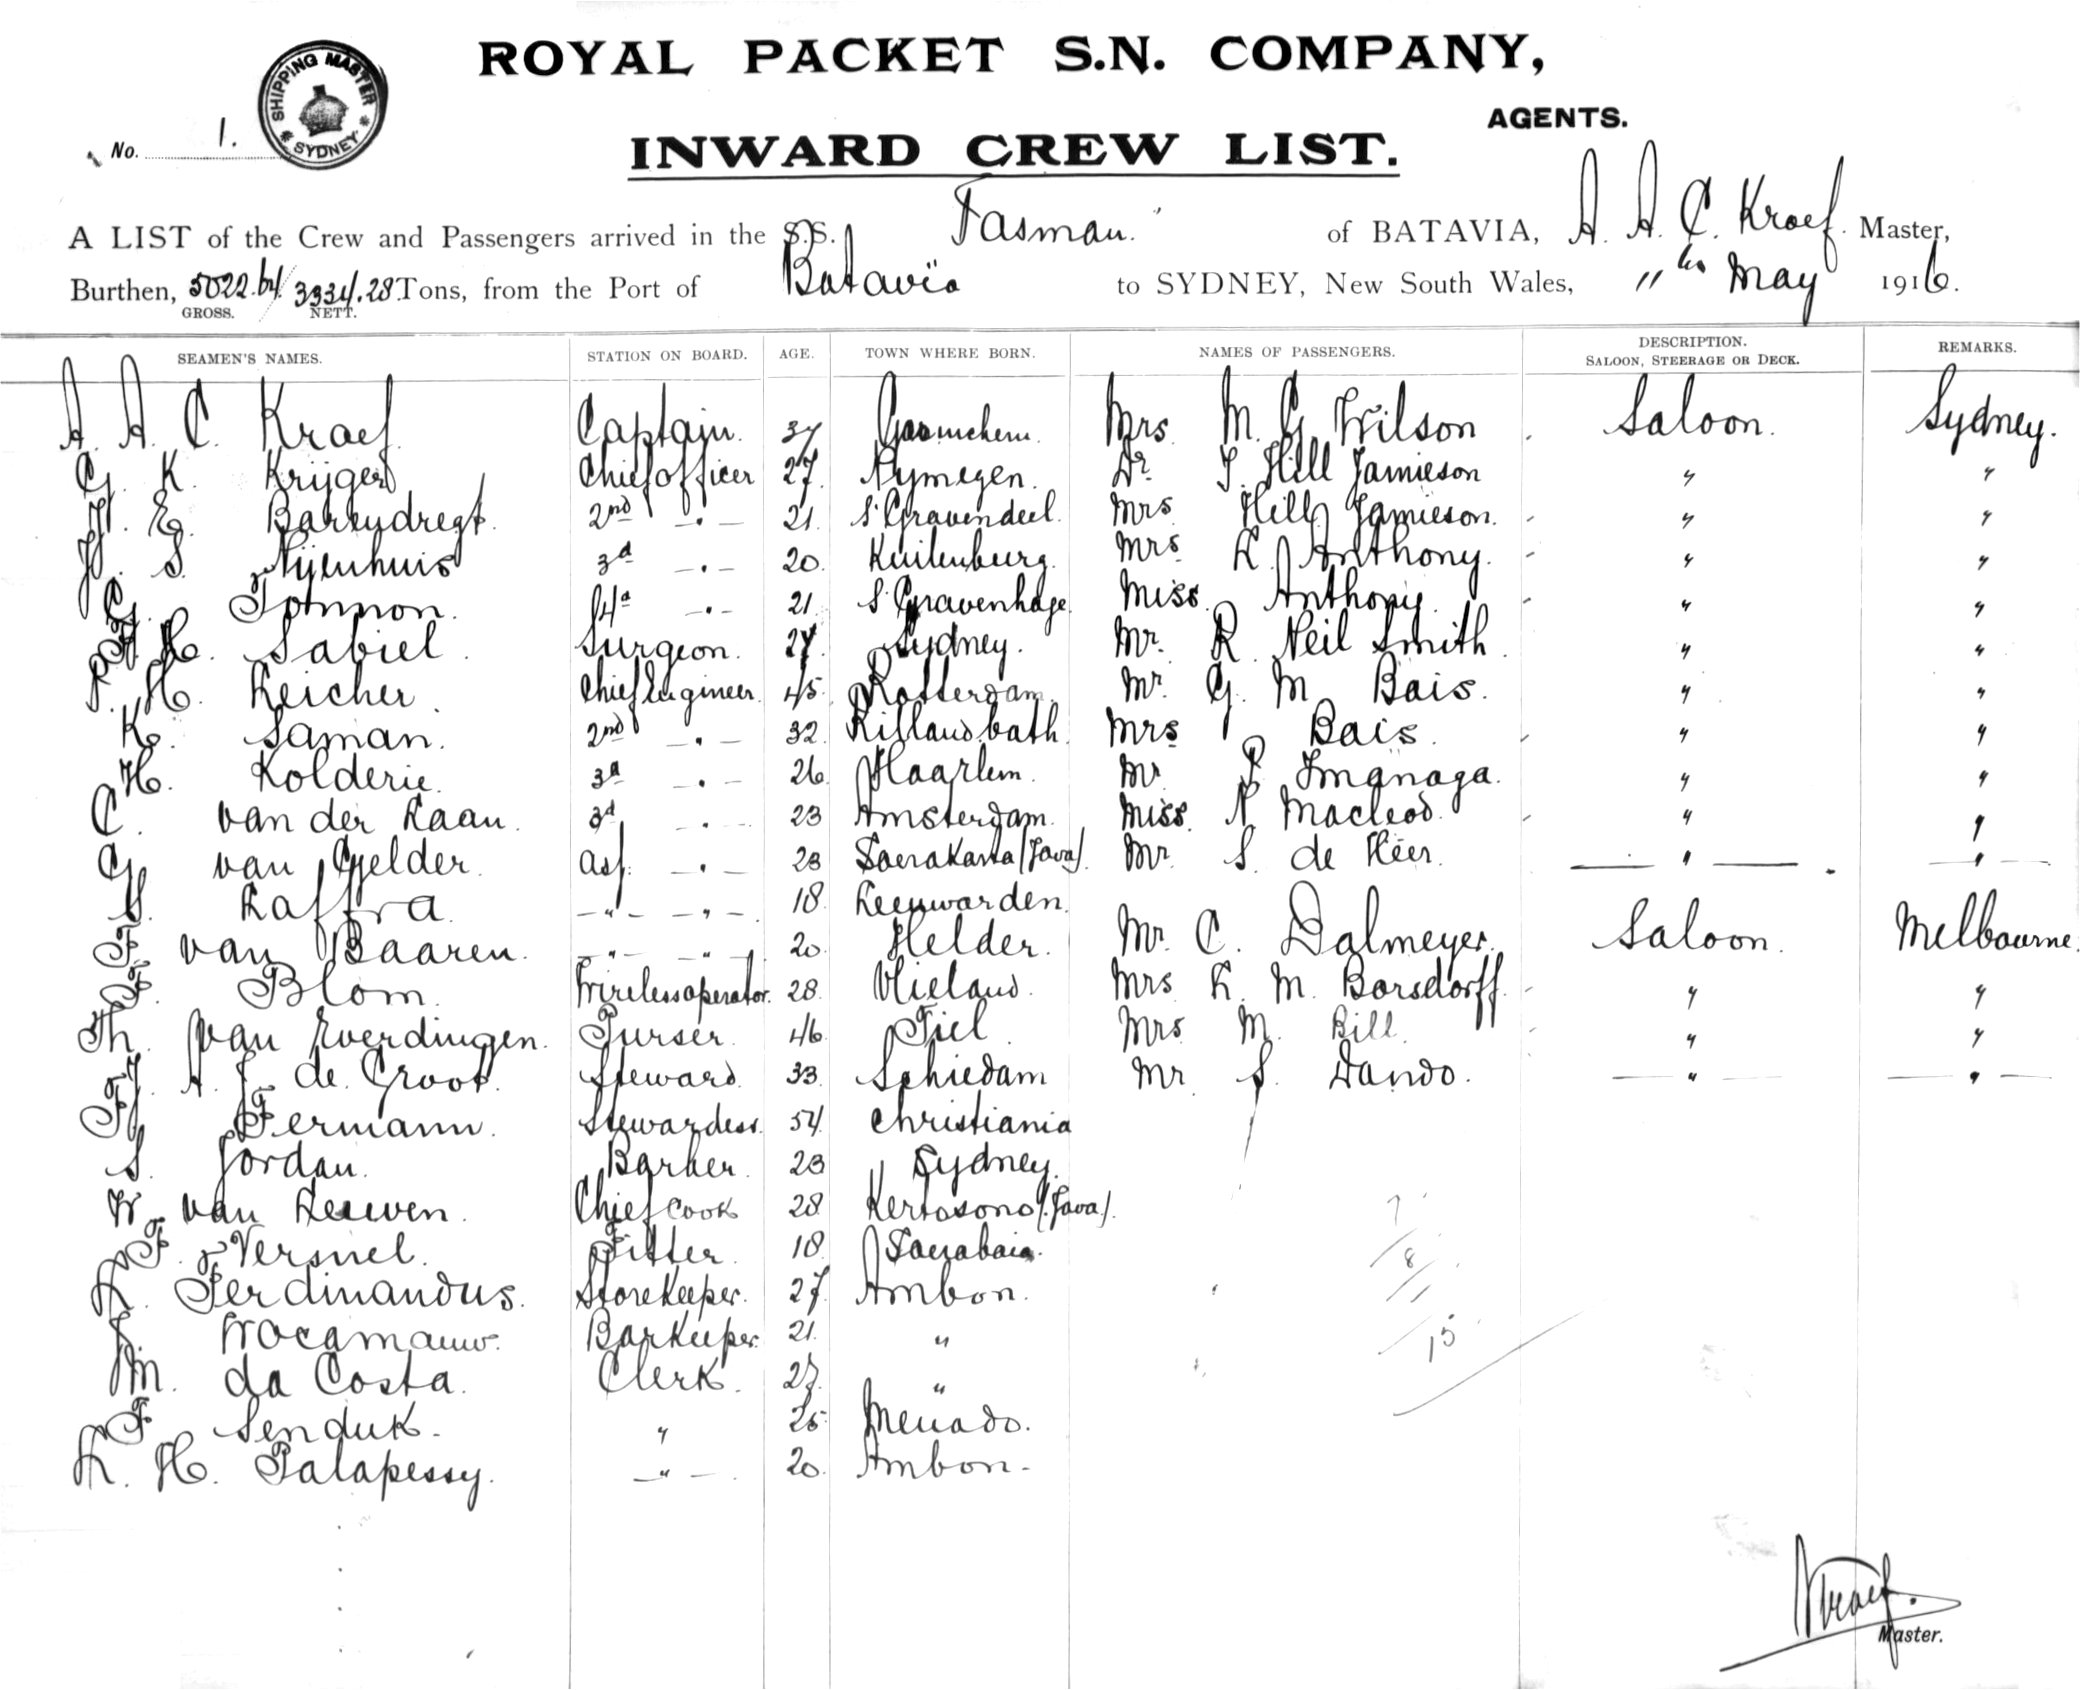 ROYAL PACKET S.N. COMPANY,
AGENTS.
SHIPPING MASTER SYDNEY
No. 1.
INWARD CREW LIST.
A LIST of the Crew and Passengers arrived in the S.S. Tasman. of BATAVIA, A. A. C. Kraef. Master,
Burthen, 5022.64 GROSS. 3334.28 NETT. Tons, from the Port of Batavia to SYDNEY, New South Wales, 11th May 1916.
SEAMEN'S NAMES. STATION ON BOARD. AGE. TOWN WHERE BORN. NAMES OF PASSENGERS. DESCRIPTION. SALOON, STEERAGE OR DECK. REMARKS.
A. A. C. Kraef. Captain. 34 Gorinchem. Mrs M. G. Wilson Saloon. Sydney.
G. K. Krijger Chief officer 27. Nymegen. Dr. T. Hill Jamieson " "
H. E. Barendregt. 2nd - " - 21. S'Gravendeel. Mrs Hill Jamieson. " "
H. S. Nijenhuis 3d - " - 20. Kuilenburg. Mrs L. Anthony. " "
G. 4d - " - 21 S'Gravenhage. Miss Anthony. " "
H. Sabiel. Surgeon. 24. Sydney. Mr. R. Neil Smith " "
P. H. Reicher. Chief Engineer. 45. Rotterdam. Mr. G. M. Bais. " "
K. Saman. 2nd - " - 32. Rilland bath. Mrs Bais. " "
H. Kolderie. 3d - " - 26. Haarlem. Mr P. Imanaga. " "
C. van der Laan. 3d - " - 23 Amsterdam. Miss N. Macleod. " "
G. van Gelder. ass. - " - 23 Soerakarta (Java). Mr S. de Heer. " "
S. Laffra. - " - - " - 18. Leeuwarden.
F. van Baaren. - " - - " - 20. Helder. Mr. C. Dalmeyer. Saloon. Melbourne.
F. Blom. Wirelessoperator. 28. Vlieland. Mrs L. M. Borsdorff. " "
Th. van Everdingen. Purser. 46. Tiel Mrs M. Bill. " "
A. J. de Groot. Steward. 33. Schiedam Mr S. Dando. " "
Fermann. Stewardess. 54. Christiania
S. Jordan. Barber. 23 Sydney.
W. van Leeuwen. Chief cook 28. Kertosono (Java).
F. Versnel. Fitter. 18. Soerabaia.
L. Ferdinandus. Storekeeper. 27. Ambon.
Wocamauw. Barkeeper. 21. "
M. da Costa. Clerk. 27. "
F. Senduk. " 25 Menado.
L. H. Palapessy. - " - 20. Ambon.
7
8
15
Kraef.
Master.